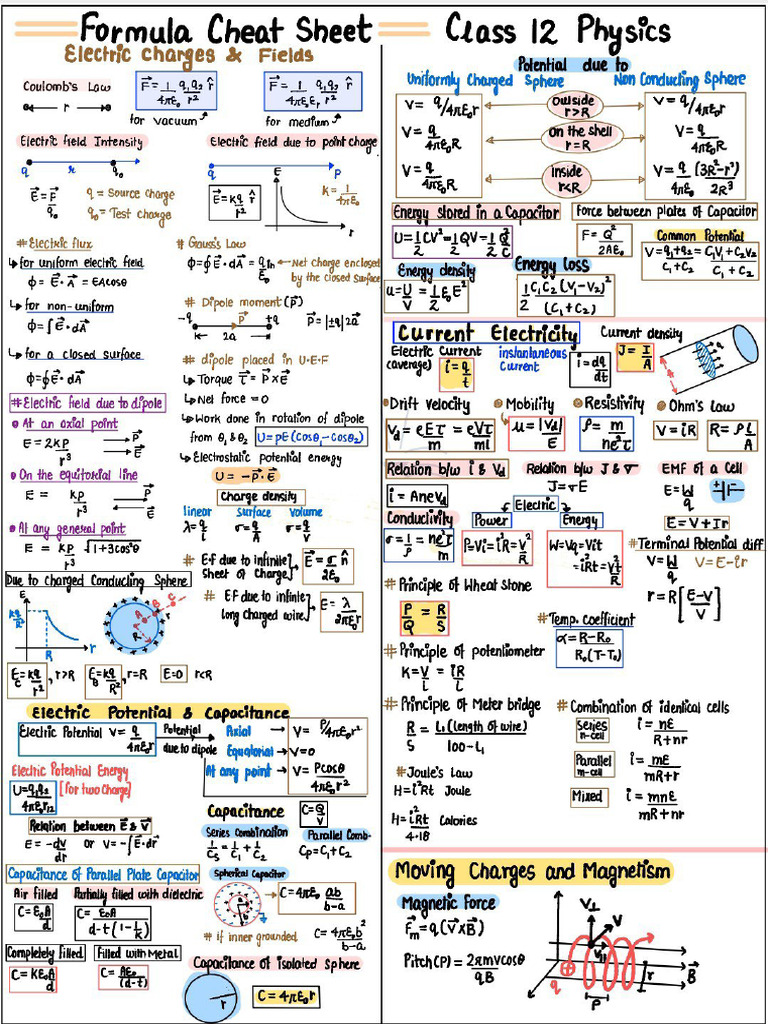 Formula Cheat Sheet Class 12 Physics
Electric Charges & Fields
Coulomb's Law
r
F⃗ = 1/4πε₀ q₁q₂/r² r̂
for vacuum
F⃗ = 1/4πε₀εᵣ q₁q₂/r² r̂
for medium
Electric field Intensity
q r q₀
E⃗ = F⃗/q₀
q = Source charge
q₀ = Test charge
Electric field due to point charge
q P
E⃗ = Kq/r² r̂
E
r
K = 1/4πε₀
# Electric flux
for uniform electric field
ϕ = E⃗·A⃗ = EAcosθ
for non-uniform
ϕ = ∫E⃗·dA⃗
for a closed surface
ϕ = ∮E⃗·dA⃗
# Gauss's Law
ϕ = ∮E⃗·dA⃗ = qᵢₙ/ε₀
Net charge enclosed
by the closed Surface
# Dipole moment (p⃗)
-q P⃗ +q
2a
P⃗ = |±q|2a⃗
# dipole placed in U.E.F
Torque τ⃗ = P⃗ × E⃗
Net force = 0
Work done in rotation of dipole
from θ₁ & θ₂ U = pE(cosθ₁ - cosθ₂)
Electrostatic potential energy
U = -P⃗·E⃗
# Electric field due to dipole
At an axial point
E = 2kp/r³
P⃗
E⃗
On the equitorial line
E = kp/r³
P⃗
E⃗
At any general point
E = kp/r³ √1+3cos²θ
Charge density
linear Surface Volume
λ = q/l σ = q/A σ = q/V
# E.f due to infinite
sheet of Charge
E⃗ = σ/2ε₀ n̂
# E.f due to infinite
long charged wire
E = λ/2πε₀r
Due to charged Conducting Sphere
E
kq/R²
R r
A B C
R
E_C = kq/r², r>R E_B = kq/R², r=R E=0 r<R
Electric Potential & Capacitance
Electric Potential V = q/4πε₀r
Potential
due to dipole
Axial V = P/4πε₀r²
Equatorial V = 0
At any point V = Pcosθ/4πε₀r²
Electric Potential Energy
U = q₁q₂/4πε₀r₁₂
[for two Charge]
Relation between E⃗ & V⃗
E = -dv/dr or V = -∫E⃗·dr⃗
Capacitance C = Q/V
Series Combination
1/Cs = 1/C₁ + 1/C₂
Parallel Comb-
Cp = C₁ + C₂
Capacitance of Parallel Plate Capacitor
Air filled
C = ε₀A/d
Partially filled with dielectric
C = ε₀A/d-t(1-1/k)
Completely filled
C = Kε₀A/d
Filled with Metal
C = Aε₀/(d-t)
Spherical Capacitor
C = 4πε₀ ab/b-a
# if inner grounded
C = 4πε₀ b²/b-a
Capacitance of isolated Sphere
r
C = 4πε₀r
Potential due to
Uniformly Charged Sphere Non Conducting Sphere
V = q/4πε₀r outside r>R V = q/4πε₀r
V = q/4πε₀R On the shell r=R V = q/4πε₀R
V = q/4πε₀R Inside r<R V = q/4πε₀ (3R²-r²)/2R³
Energy stored in a Capacitor
U = 1/2 CV² = 1/2 QV = 1/2 Q²/C
Force between plates of Capacitor
F = Q²/2Aε₀
Common Potential
V = q₁+q₂/C₁+C₂ = C₁V₁+C₂V₂/C₁+C₂
Energy density
u = U/V = 1/2 ε₀E²
Energy loss
1/2 C₁C₂(V₁-V₂)²/(C₁+C₂)
Current Electricity
Electric Current
(average) i = q/t
instantaneous
Current i = dq/dt
Current density
J = I/A
A
Drift velocity
V_d = eEτ/m = eVτ/ml
Mobility
μ = |V_d|/E
Resistivity
ρ = m/ne²τ
Ohm's law
V = iR R = ρl/A
Relation b/w i & V_d
i = AneV_d
Relation b/w J & σ
J = σE
EMF of a Cell
E = W/q
E = V + Ir
Conductivity
σ = 1/ρ = ne²τ/m
Electric
Power
P = Vi = i²R = V²/R
Energy
W = Vq = Vit
= i²Rt = V²t/R
# Terminal Potential diff
V = W/q V = E-ir
r = R[E-V/V]
# Principle of Wheat stone
P/Q = R/S
# Temp. Coefficient
α = R-R₀/R₀(T-T₀)
# Principle of potentiometer
K = V/l = iR/l
# Principle of Meter bridge
R/S = L₁(length of wire)/100-L₁
# Joule's Law
H = i²Rt Joule
H = i²Rt/4.18 Calories
# Combination of identical cells
Series n-cell i = nE/R+nr
Parallel m-cell i = mE/mR+r
Mixed i = mnE/mR+nr
Moving Charges and Magnetism
Magnetic Force
F⃗m = q(V⃗×B⃗)
Pitch(P) = 2πmvcosθ/qB
V⊥
V
V∥
q
r
B⃗
P